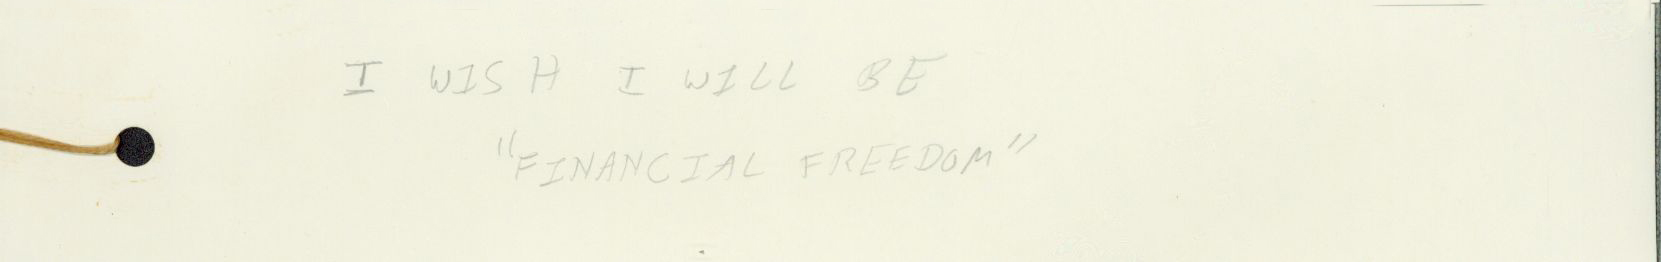 I WISH I WILL BE
"FINANCIAL FREEDOM"